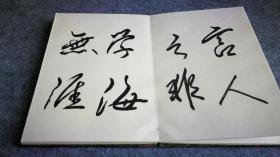 言人
之非
学海
無涯